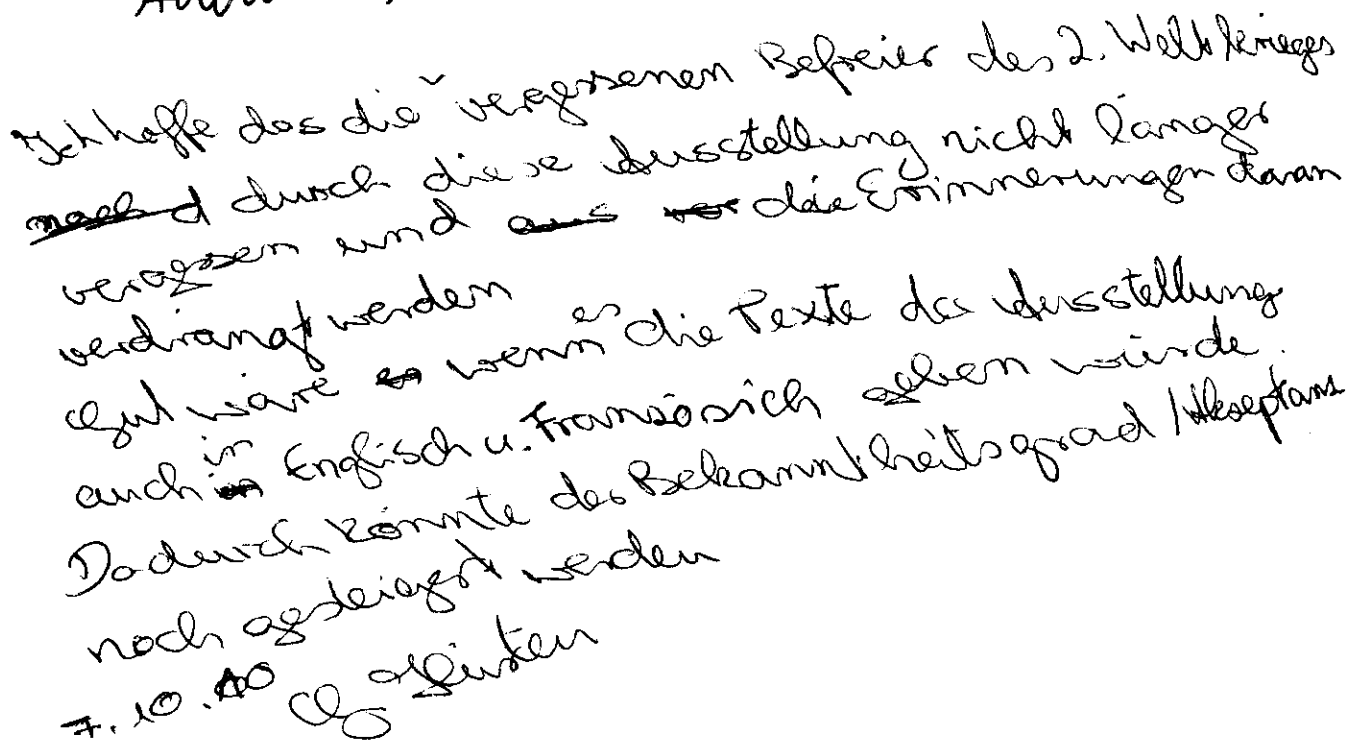 Ich hoffe das die vergessenen Befreier des 2. Weltkrieges
durch diese Ausstellung nicht länger
vergessen und die Erinnerungen daran
verdrängt werden
Gut wäre wenn es die Texte der Ausstellung
auch in Englisch u. Französich geben würde.
Dadurch könnte der Bekanntheitsgrad / Akzeptanz
noch gesteigert werden
7.10.10